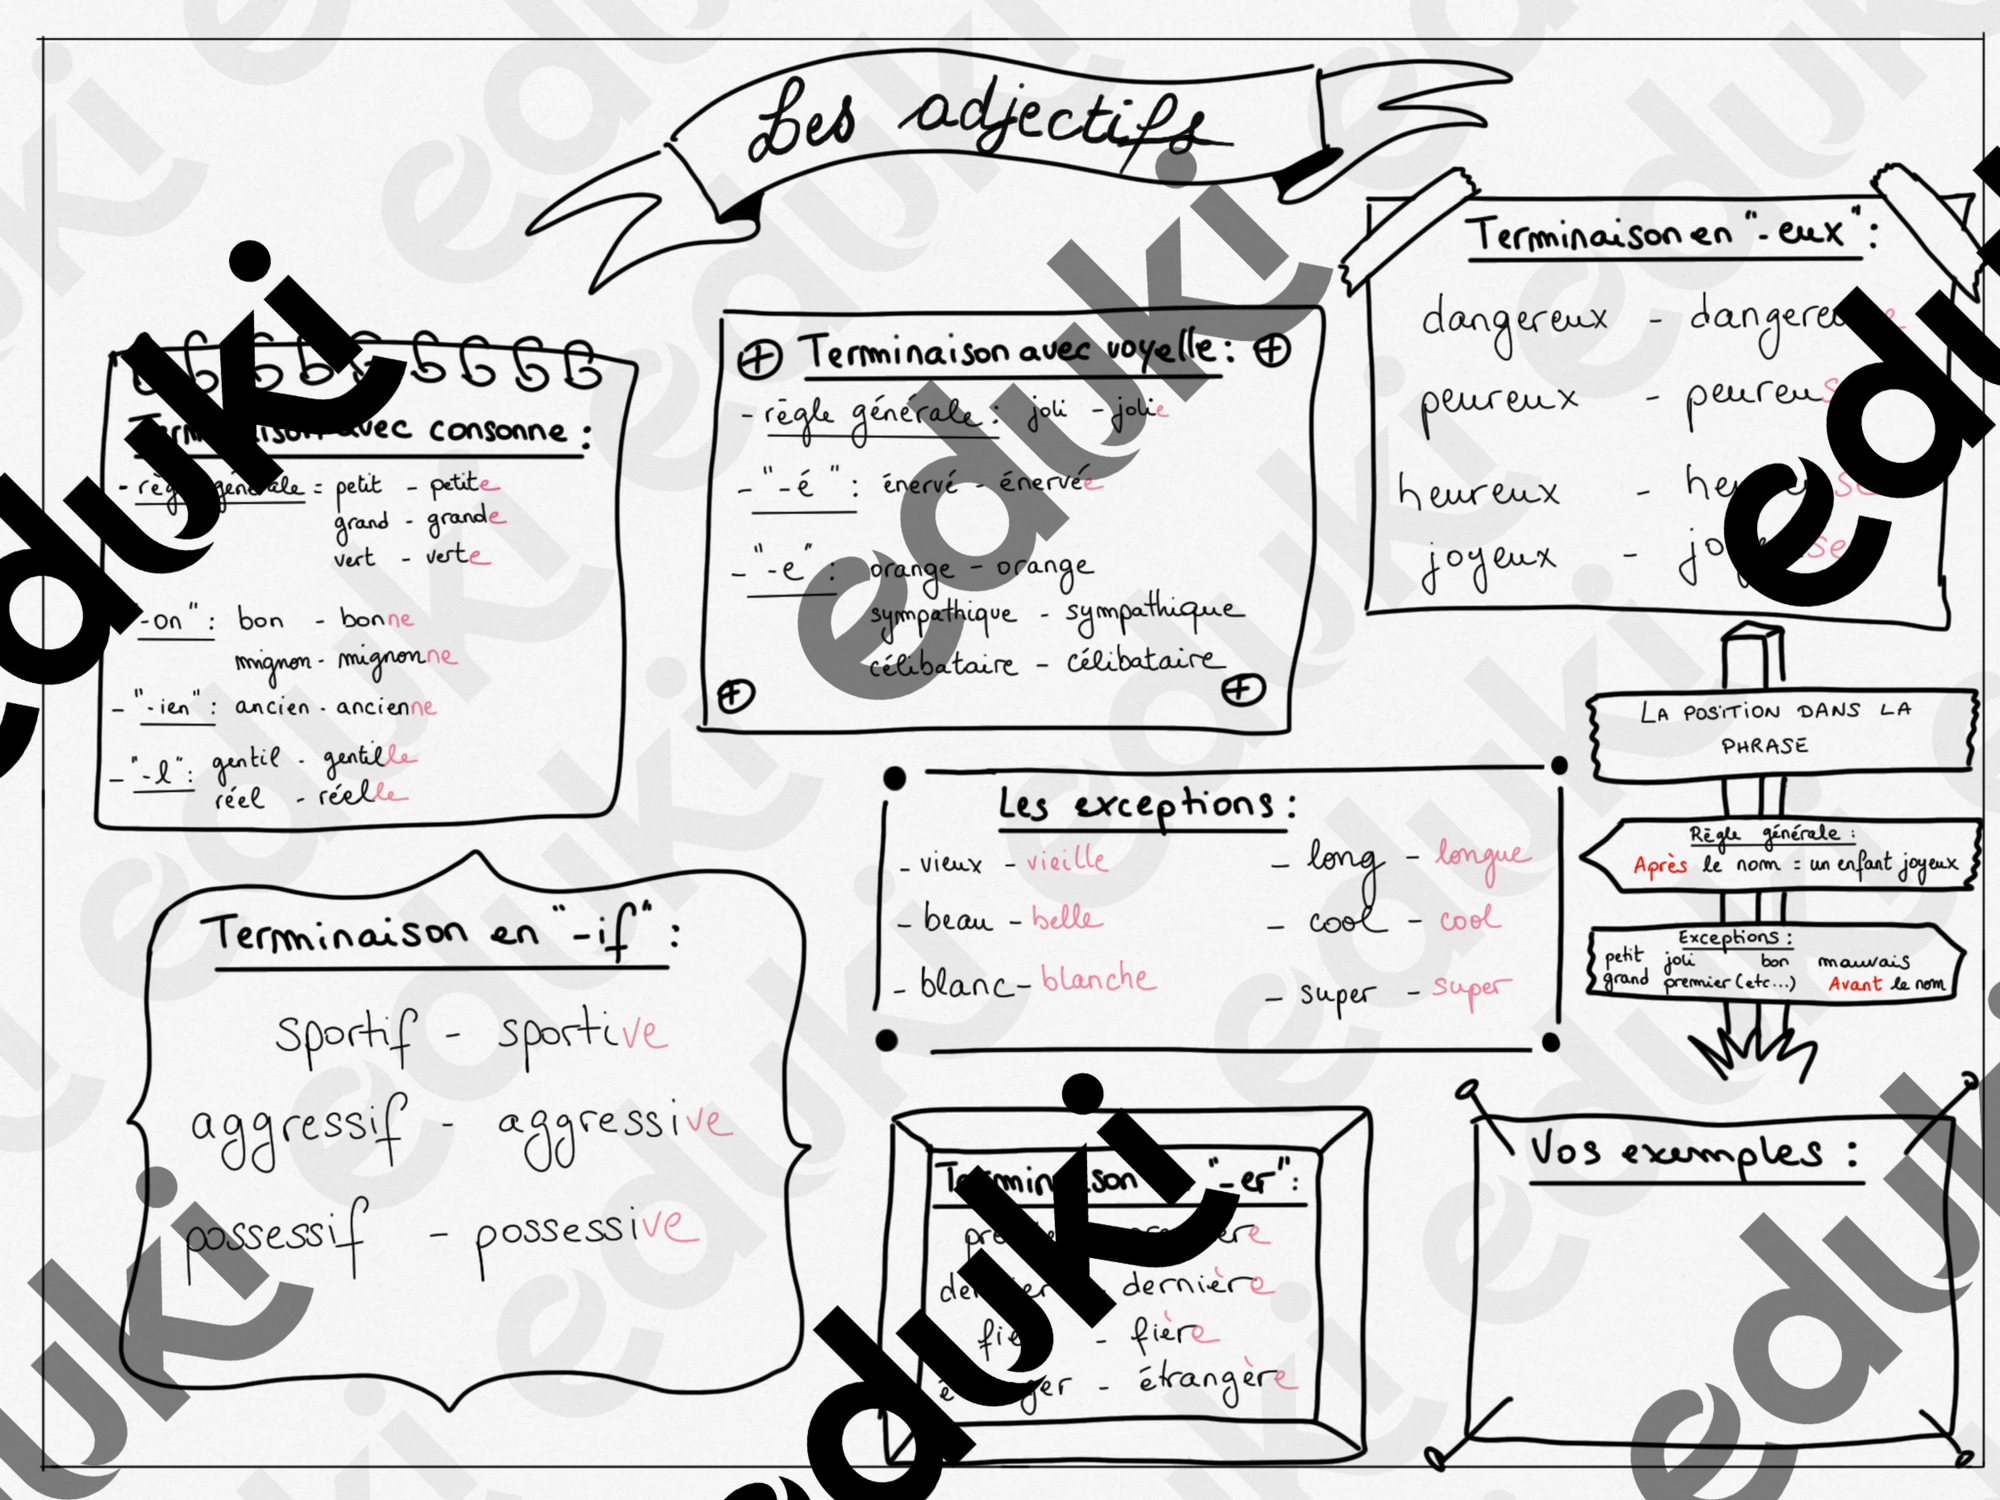 Les adjectifs
Terminaison avec consonne :
- règle générale = petit - petite
grand - grande
vert - verte
"-on" : bon - bonne
mignon - mignonne
- "-ien" : ancien - ancienne
- "-l" : gentil - gentille
réel - réelle
Terminaison avec voyelle :
- règle générale : joli - jolie
- "-é" : énervé - énervée
- "-e" : orange - orange
sympathique - sympathique
célibataire - célibataire
Terminaison en "-eux" :
dangereux -
peureux -
heureux -
joyeux -
LA POSITION DANS LA
PHRASE
Règle générale :
Après le nom = un enfant joyeux
Exceptions :
petit joli bon mauvais
grand premier (etc...) Avant le nom
Les exceptions :
- vieux - vieille
- beau - belle
- blanc - blanche
- long - longue
- cool - cool
- super - super
Terminaison en "-if" :
sportif - sportive
aggressif - aggressive
possessif - possessive
Terminaison "-er" :
- dernière
- fière
- étrangère
Vos exemples :
eduki
eduki
eduki
eduki
eduki
eduki